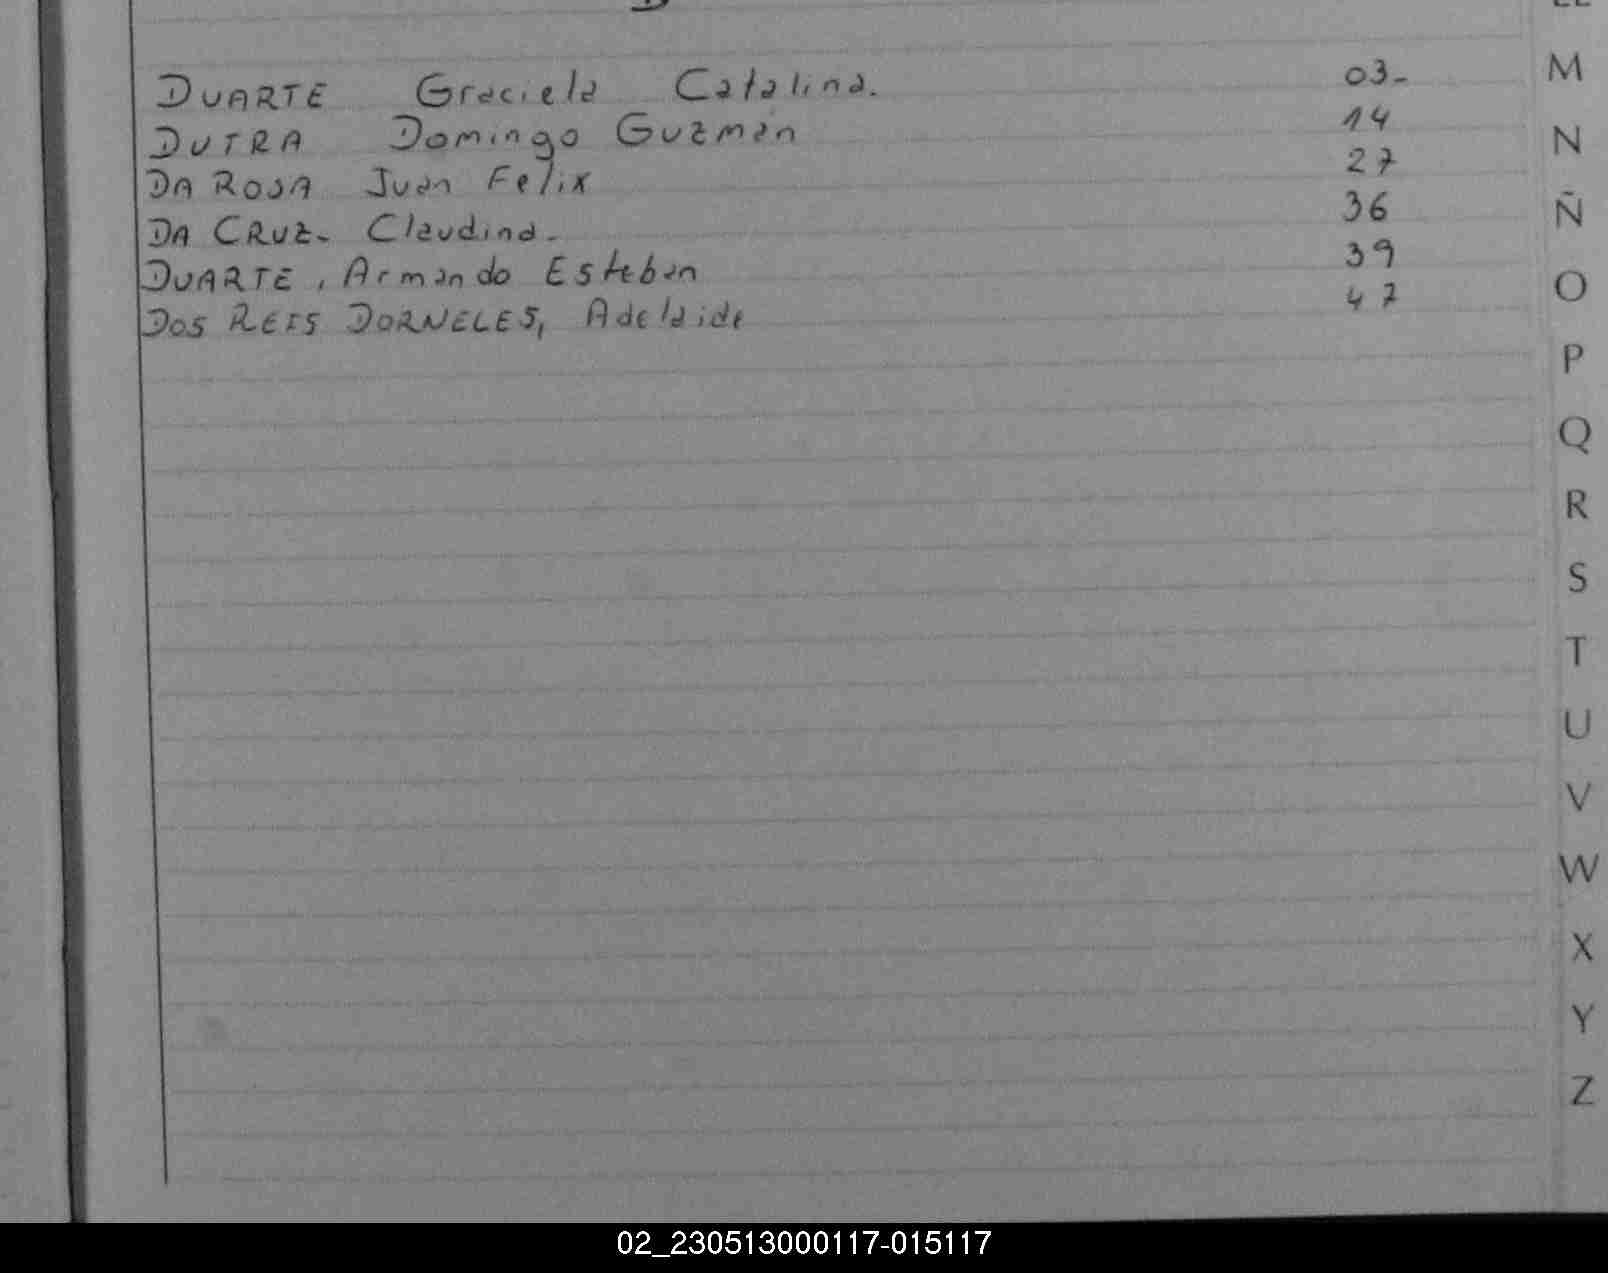 D
DUARTE Graciela Catalina. 03-
DUTRA Domingo Guzman 14
DA ROSA Juan Felix 27
DA CRUZ- Claudina. 36
DUARTE, Armando Esteban 39
DOS REIS DORNELES, Adelaide 47
LL
M
N
Ñ
O
P
Q
R
S
T
U
V
W
X
Y
Z
02_230513000117-015117